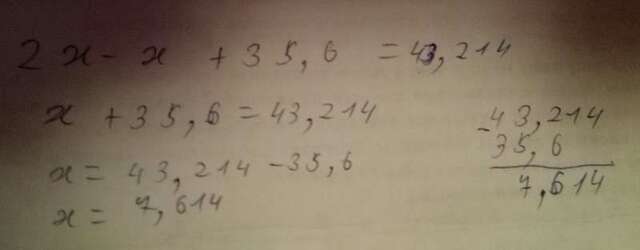 2x - x + 35,6 = 43,214
x + 35,6 = 43,214
x = 43,214 - 35,6
x = 7,614
- 43,214
35,6
7,614